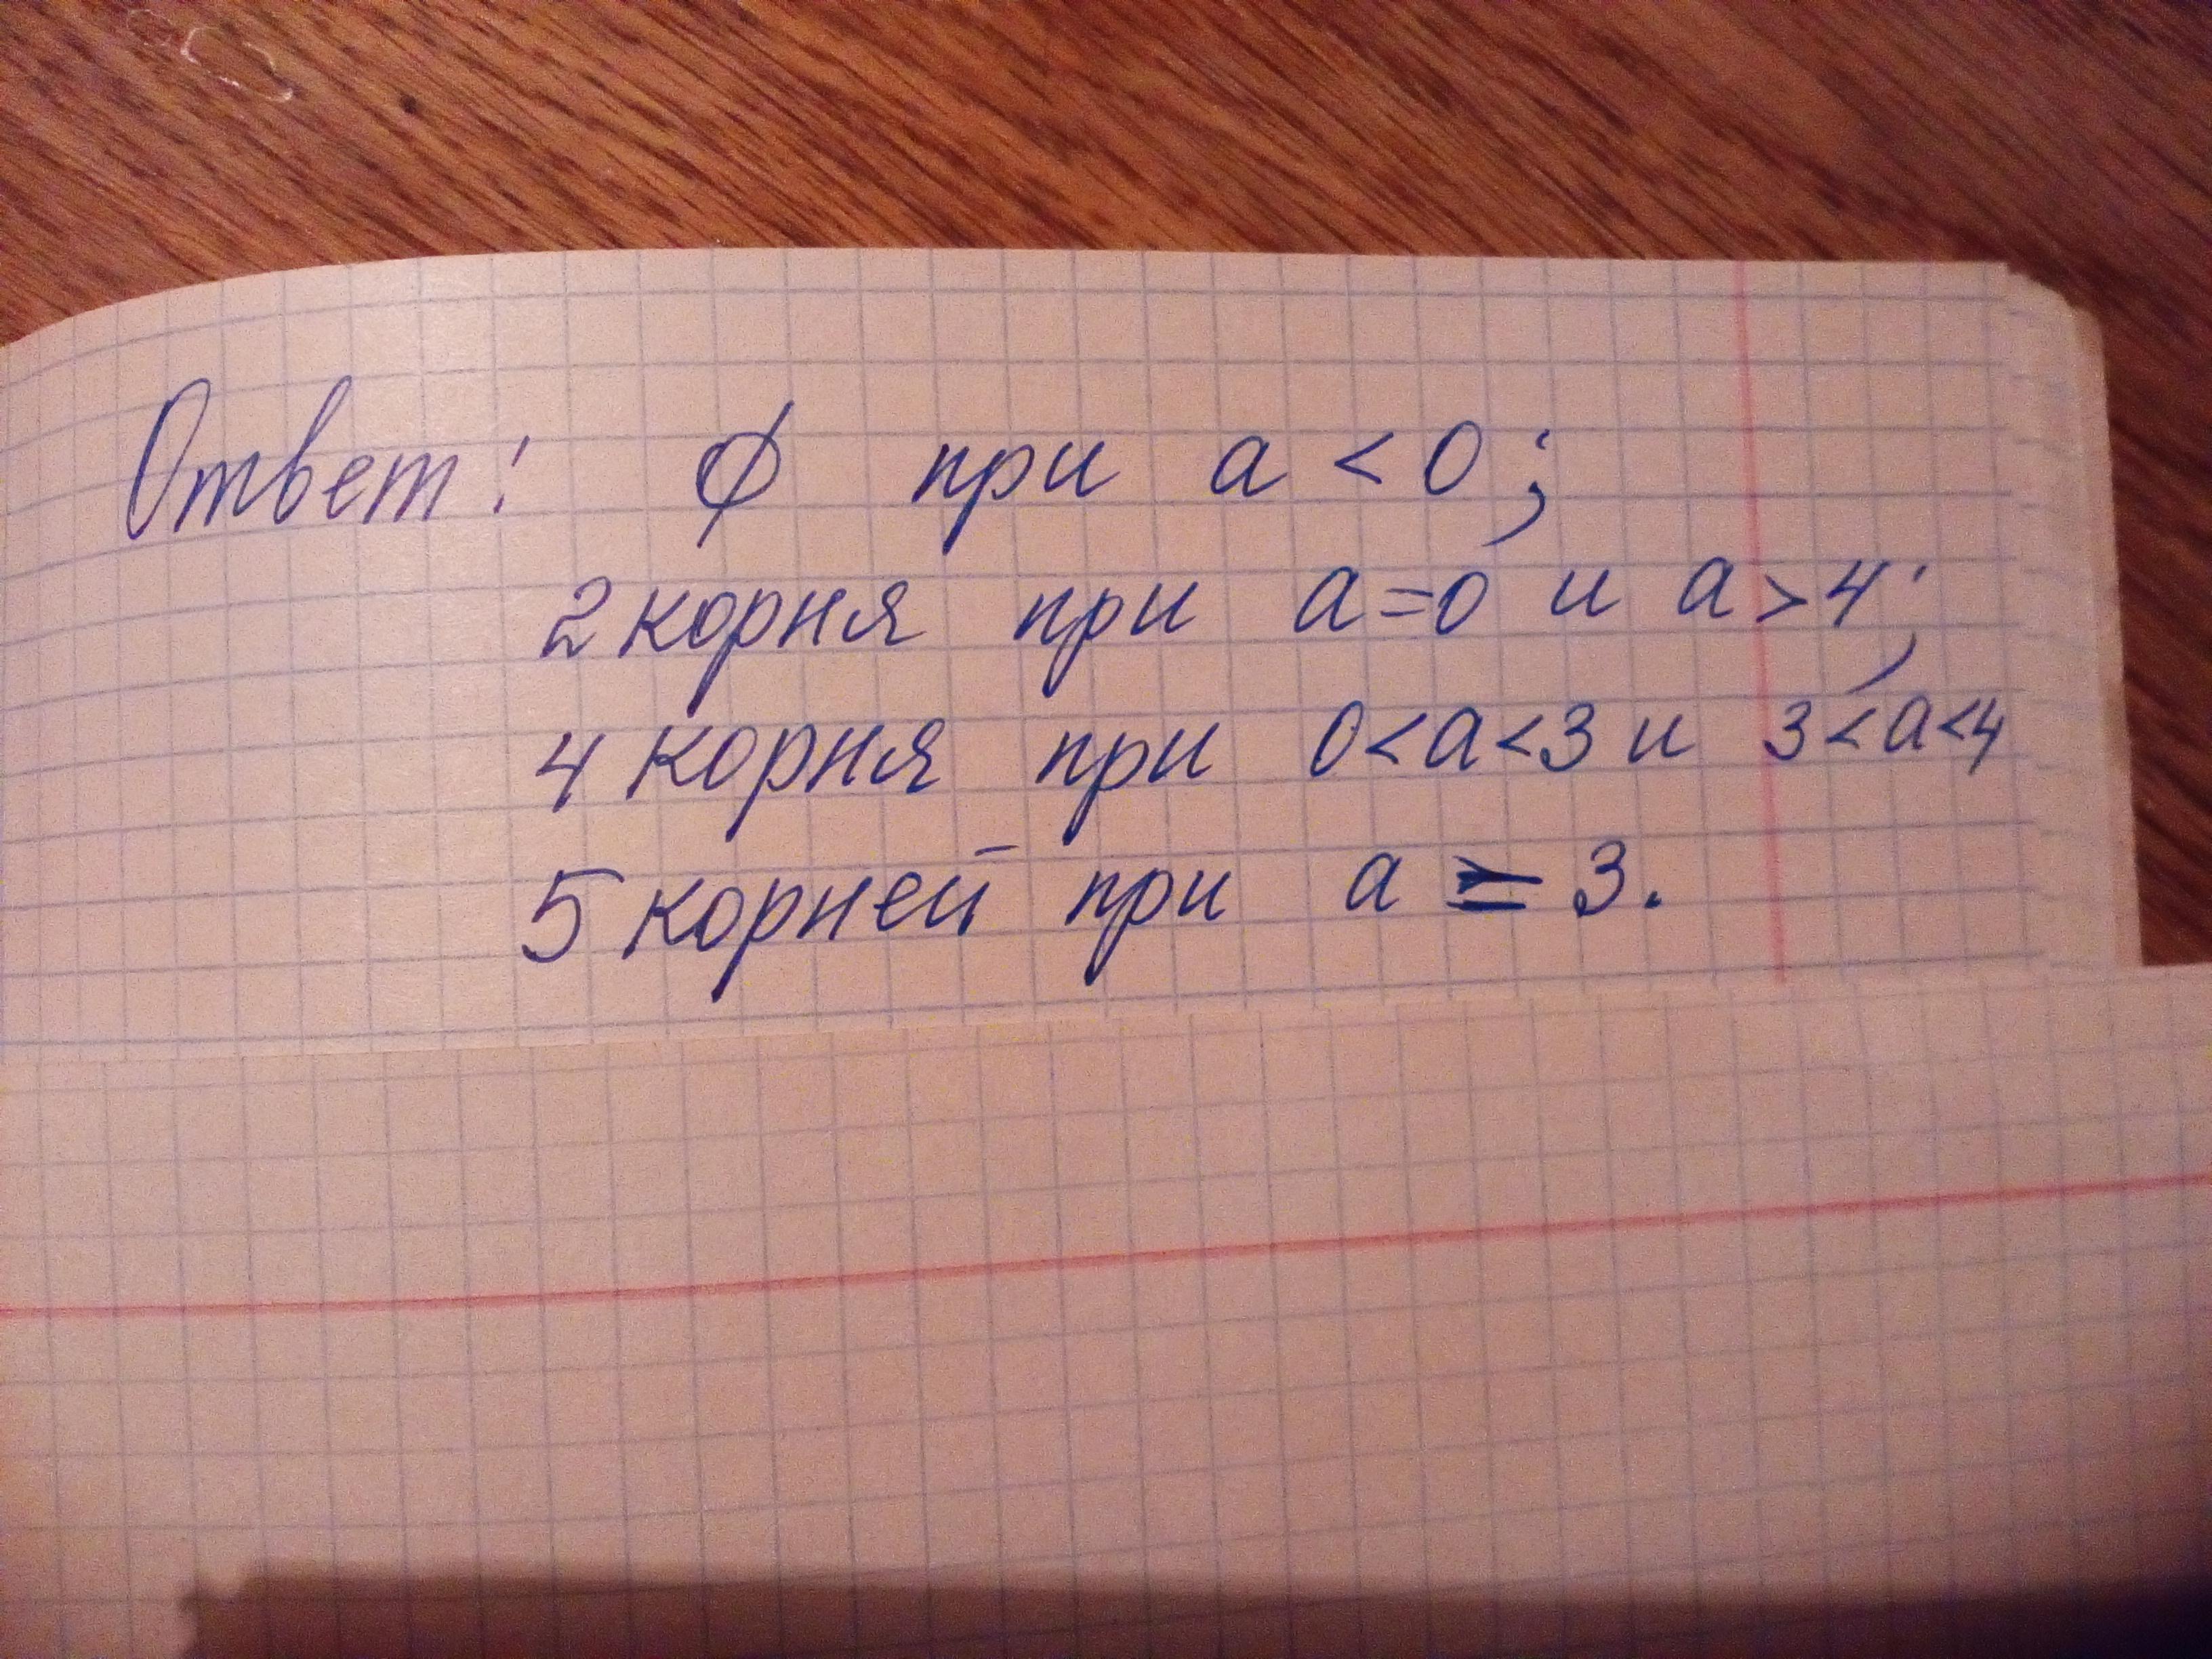 Ответ: ∅ при a < 0;
2 корня при a=0 и a>4;
4 корня при 0<a<3 и 3<a<4
5 корней при a = 3.